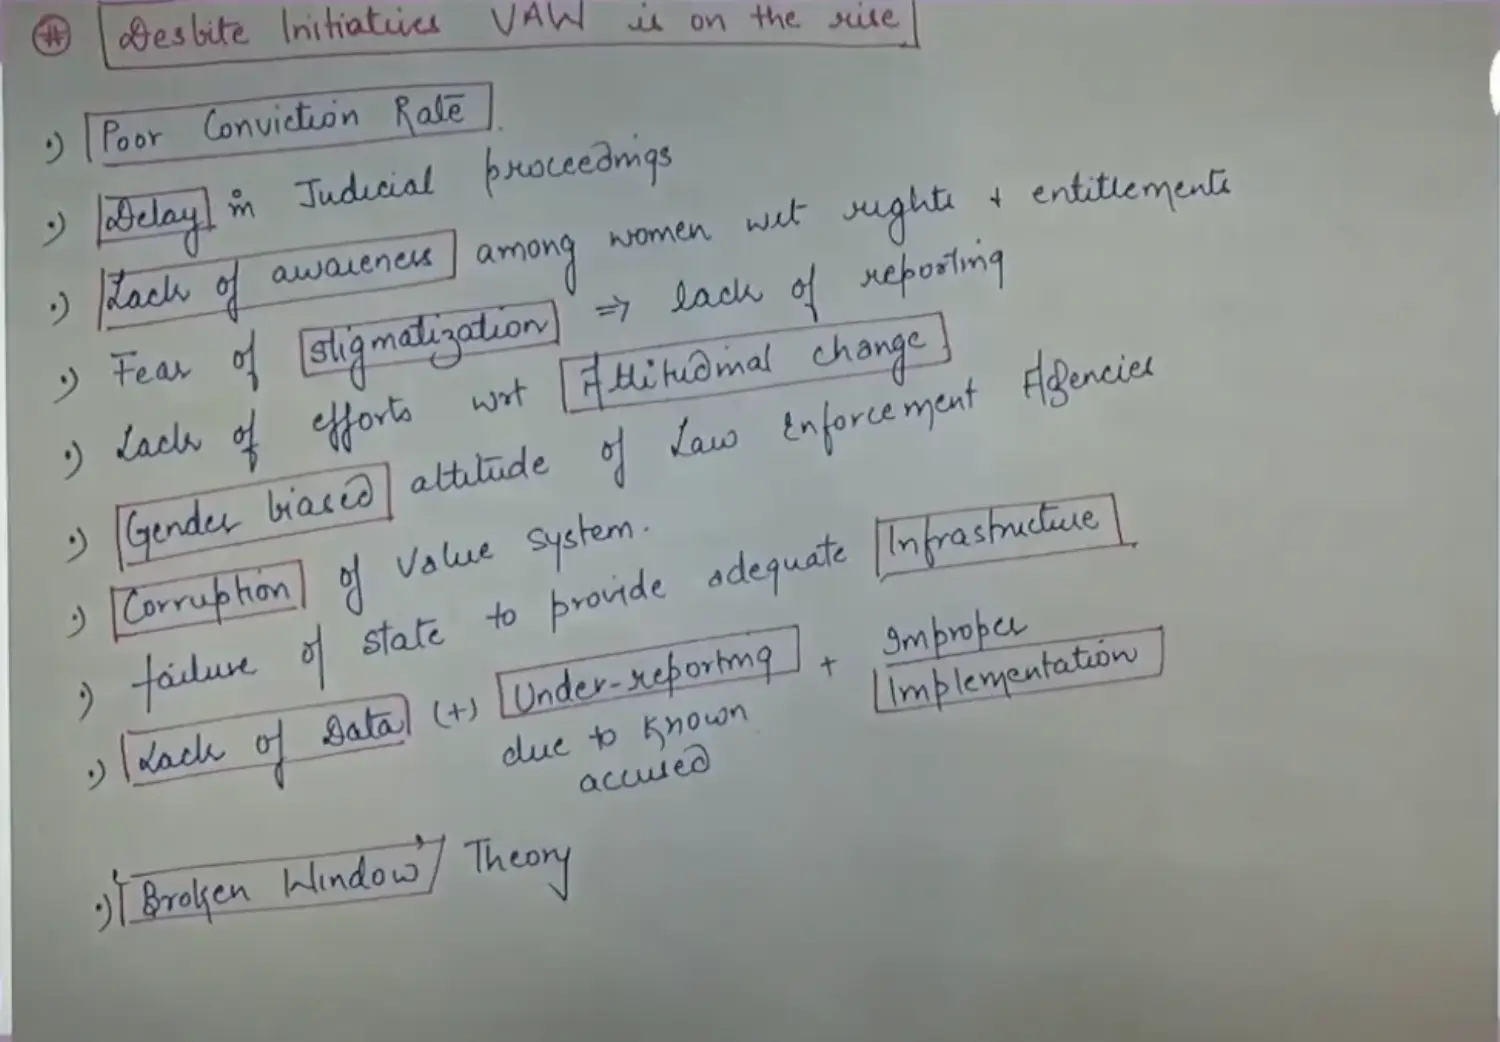 # Despite Initiatives VAW is on the rise
•) Poor Conviction Rate
•) Delay in Judicial proceedings
•) Lack of awareness among women wrt rights + entitlements
•) Fear of stigmatization ⇒ lack of reporting
•) Lack of efforts wrt Attitudinal change
•) Gender biased attitude of Law Enforcement Agencies
•) Corruption of Value system.
•) failure of state to provide adequate Infrastructure
•) Lack of Data (+) Under-reporting + Improper
Implementation
due to known
accused
•) 'Broken Window' Theory